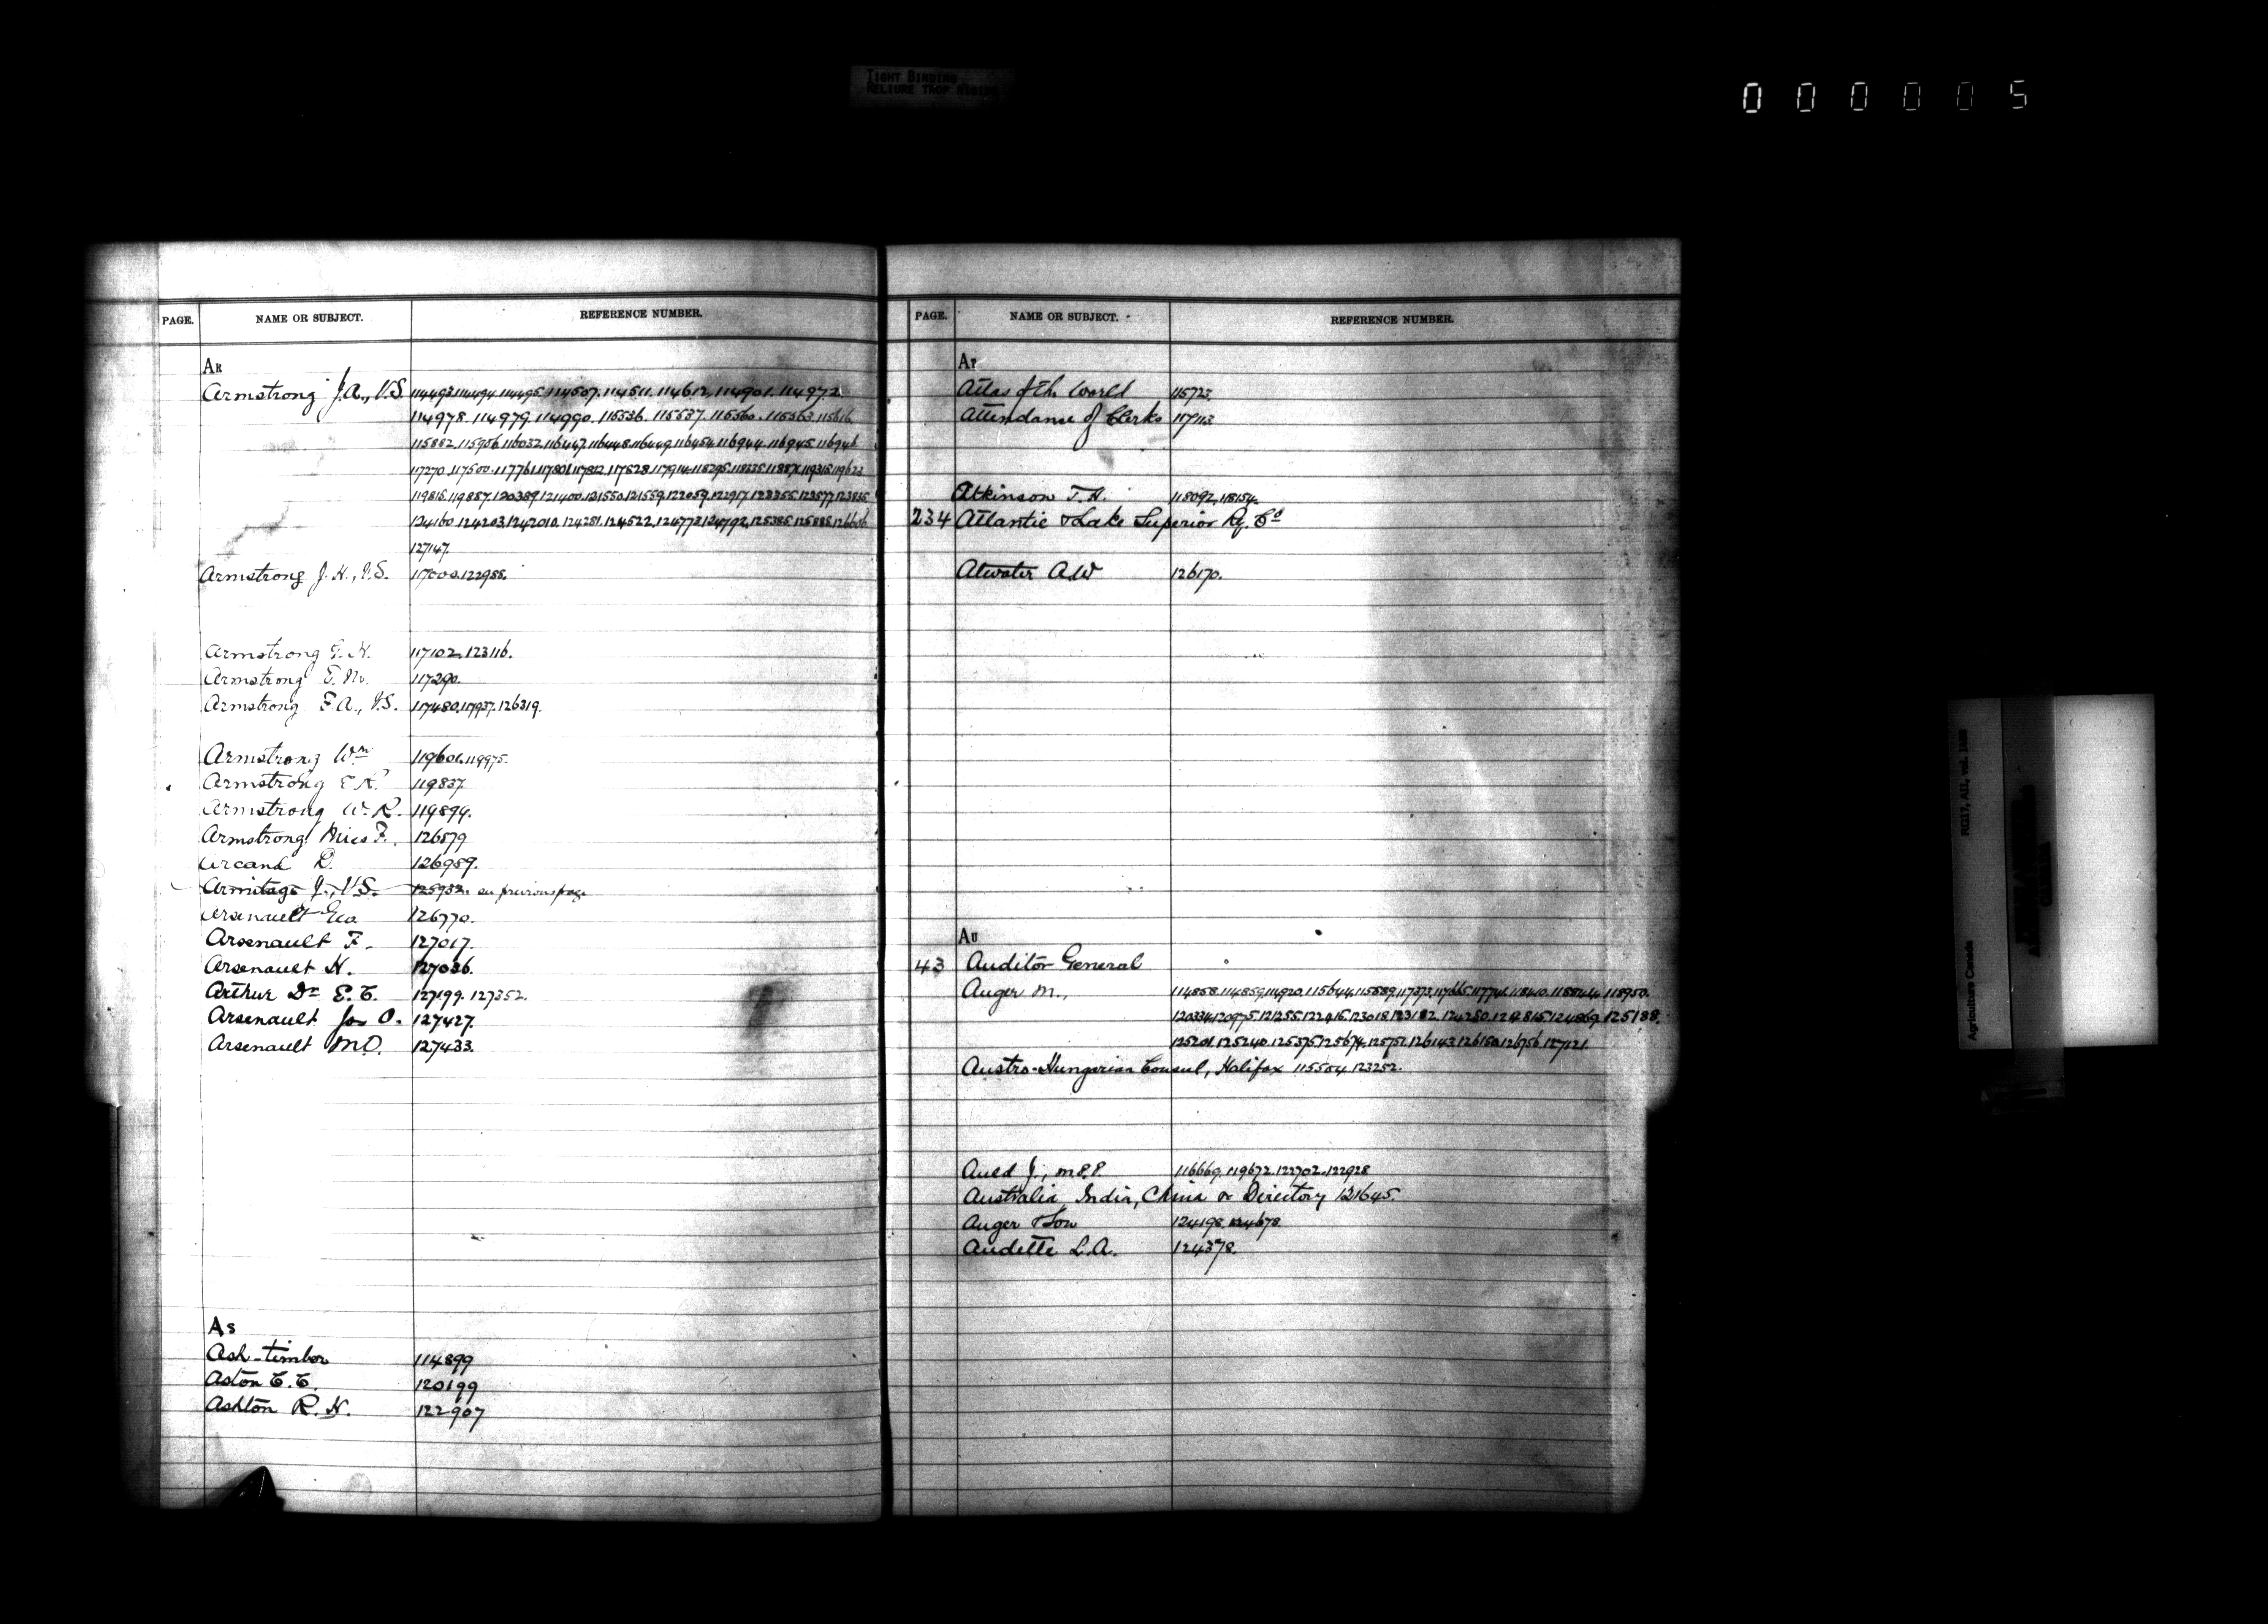 TIGHT BINDING
RELIURE TROP
000005
PAGE. NAME OR SUBJECT. REFERENCE NUMBER.
AR
Armstrong J.A., V.S. 114493. 114494. 114495. 114507. 114511. 114612. 114901. 114972.
114978. 114979. 114990. 115536. 115537. 115560. 115563. 115616.
115882. 115956. 116032. 116447. 116448. 116449. 116454. 116944. 116945. 116946
117270. 117500. 117761. 117801. 117812. 117828. 117914.
127147.
Armstrong J.H., V.S. 117000. 122988.
Armstrong G.H. 117102. 123116.
Armstrong E.M. 117290.
Armstrong F.A., V.S. 117480. 117937. 126319.
Armstrong Wm 119601. 119975.
Armstrong E.R. 119837.
Armstrong W.R. 119894.
Armstrong Miss F. 126579
Arcand D. 126959.
Armitage J., V.S. 125932. see previous page
Arsenault Geo 126770.
Arsenault F. 127017.
Arsenault H. 127036.
Arthur Dr E.C. 127199. 127352.
Arsenault Jos O. 127427.
Arsenault M.O. 127433.
AS
Ash-timber 114899
Aston C.C. 120199
Ashton R.H. 122907
PAGE. NAME OR SUBJECT. REFERENCE NUMBER.
AT
Atlas of the World 115723.
Attendance of Clerks 117113
Atkinson T.H. 118092. 118154.
234 Atlantic & Lake Superior Ry. Co
Atwater A.W 126170.
AU
43 Auditor General
Auger M., 114858. 114859. 114920. 115644. 115889. 117373. 117665. 117741. 118410. 118844. 118950.
120334. 120975. 121255. 122415. 123018. 123182. 124250. 124815. 124869. 125188.
125201. 125240. 125375. 125674. 125751. 126143. 126150. 126756. 127121.
Austro-Hungarian Consul, Halifax 115504. 123252.
Auld J., M.P.P. 116669. 119672. 122702. 122928
Australia India, China &c Directory 121645.
Auger & Son 124198. 124678.
Audette L.A. 124378.
Agriculture Canada RG17, AII, vol.